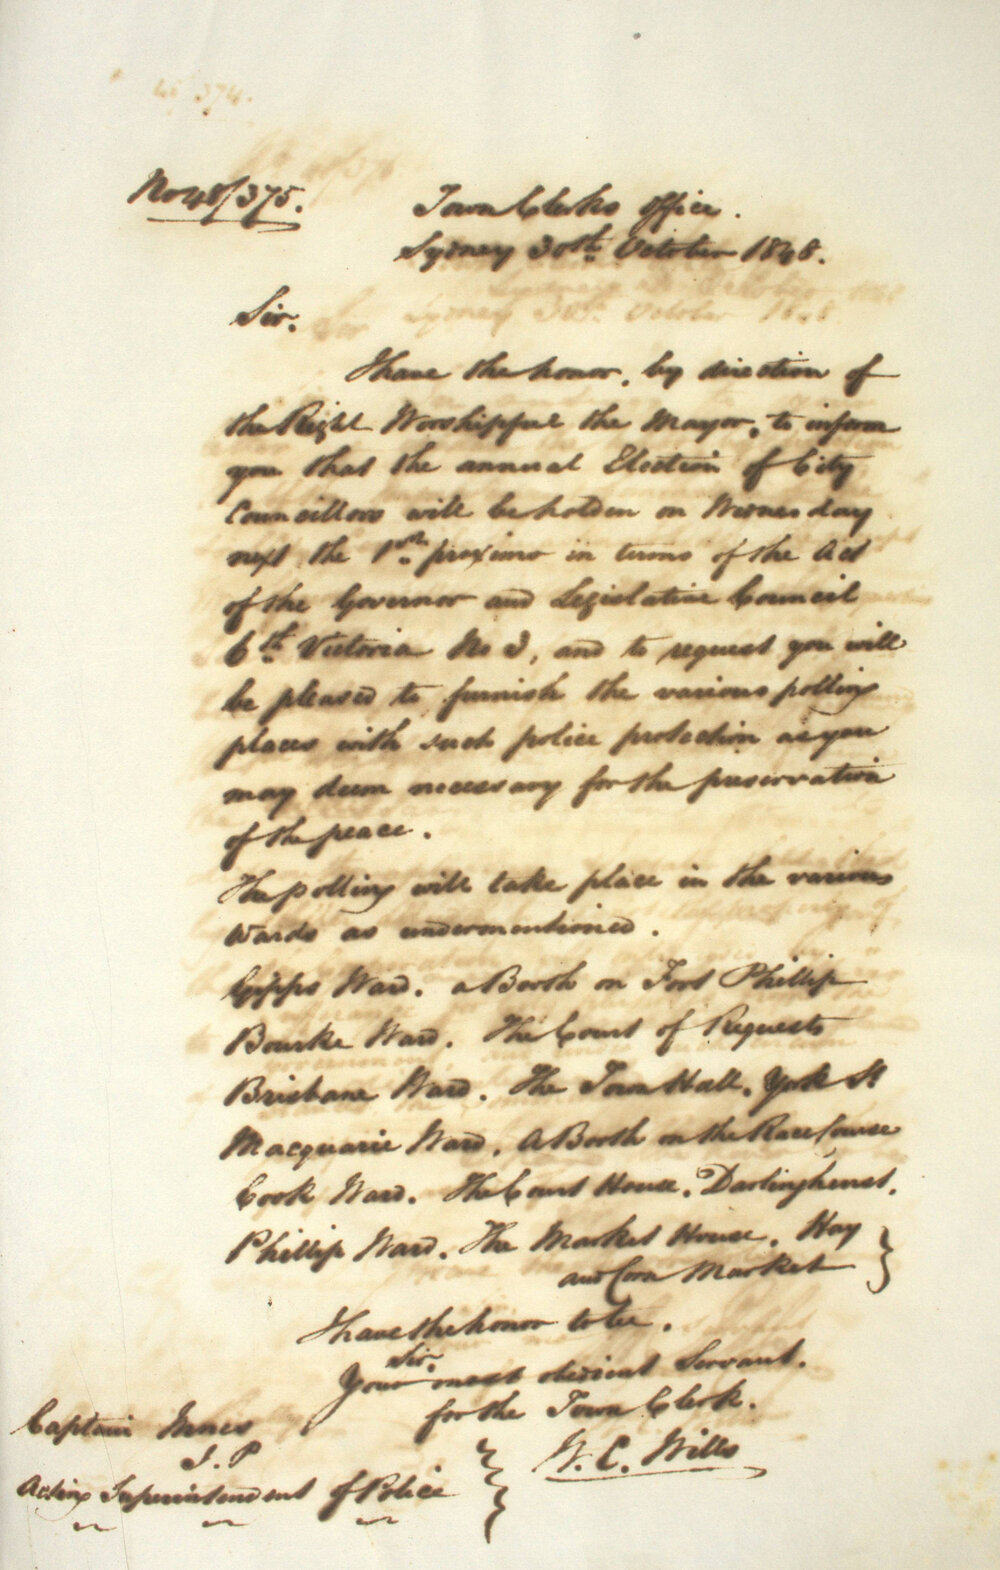 48/374.
No 48/375.
Town Clerks Office.
Sydney 30th October 1848.
Sir.
I have the honor, by direction of
the Right Worshipful the Mayor, to inform
you that the annual Election of City
Councillors will be holden on Wednesday
next the 1st proximo in terms of the Act
of the Governor and Legislative Council
6th Victoria No 3, and to request you will
be pleased to furnish the various polling
places with such police protection as you
may deem necessary for the preservation
of the peace.
The polling will take place in the various
Wards as undermentioned.
Gipps Ward. a Booth on Fort Phillip
Bourke Ward. The Court of Requests
Brisbane Ward. The Town Hall. York St
Macquarie Ward. A Booth on the Race Course
Cook Ward. The Court House. Darlinghurst.
Phillip Ward. The Market House. Hay
and Corn Market
I have the honor to be.
Sir.
Your most obedient Servant.
for the Town Clerk.
W. C. Wills
Captain Innes
J. P
Acting Superintendent of Police